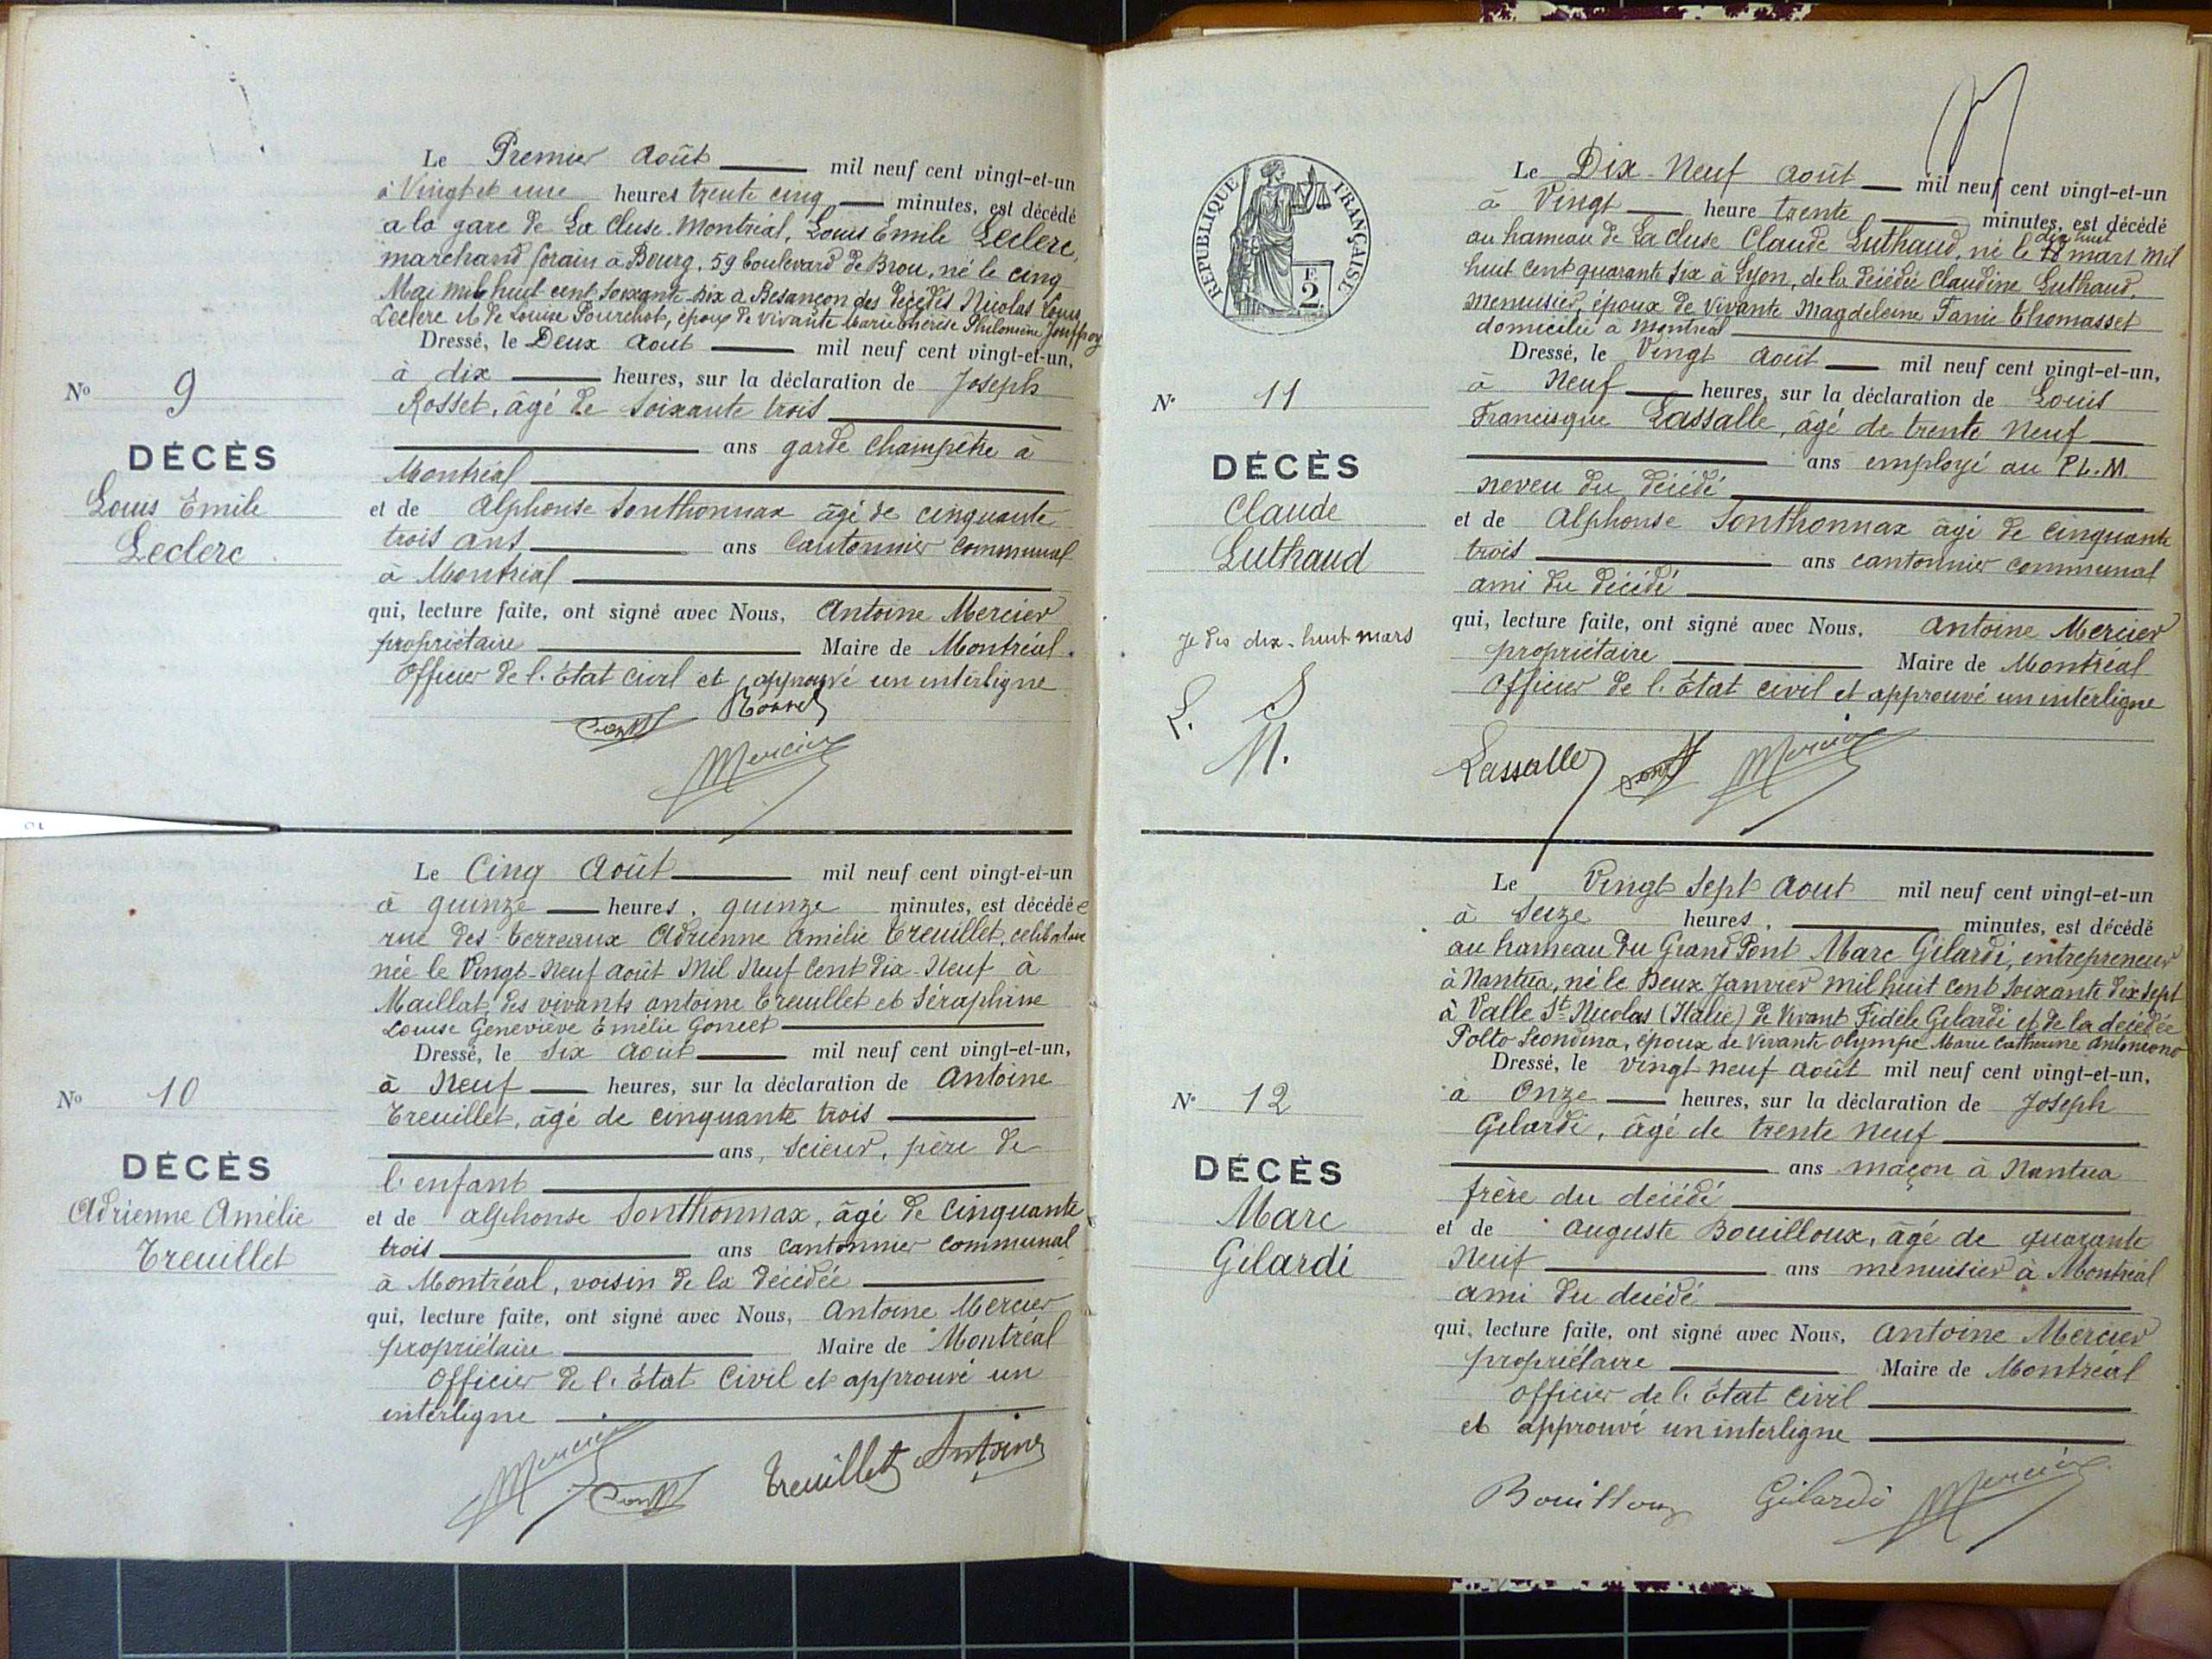 Le Premier Août mil neuf cent vingt-et-un
à Vingt et une heures trente cinq minutes, est décédé
a la gare de La Cluse-Montréal, Louis Emile Leclerc,
marchand forain à Bourg, 59 boulevard de Brou, né le cinq
Mai mil huit cent soixante-dix à Besançon des décédés Nicolas Louis
Leclerc et de Louise Pourchot, époux de vivante Marie Thérèse Philomène Jouffroy
Dressé, le Deux Aout mil neuf cent vingt-et-un,
à dix heures, sur la déclaration de Joseph
Rosset, âgé de soixante trois
ans garde champêtre à
Montréal
et de Alphonse Sonthonnax âgé de cinquante
trois ans ans Cantonnier communal
à Montréal
qui, lecture faite, ont signé avec Nous, Antoine Mercier
propriétaire Maire de Montréal.
Officier de l'État civil et approuvé un interligne
Mercier
No 9
DÉCÈS
Louis Emile
Leclerc
Le Cinq Août mil neuf cent vingt-et-un
à quinze heures, quinze minutes, est décédée
rue des Terreaux Adrienne Amélie Treuillet, célibataire
née le Vingt-Neuf août Mil Neuf Cent Dix-Neuf à
Maillat, des vivants Antoine Treuillet et Séraphine
Louise Geneviève Émélie Goncet
Dressé, le Six Août mil neuf cent vingt-et-un,
à Neuf heures, sur la déclaration de Antoine
Treuillet, âgé de cinquante trois
ans, Scieur, père de
l'enfant
et de Alphonse Sonthonnax, âgé de Cinquante
trois ans Cantonnier communal
à Montréal, voisin de la décédée
qui, lecture faite, ont signé avec Nous, Antoine Mercier
propriétaire Maire de Montréal
Officier de l'État Civil et approuvé un
interligne
Mercier Treuillet Antoine
No 10
DÉCÈS
Adrienne Amélie
Treuillet
RÉPUBLIQUE FRANÇAISE
2
Le Dix-Neuf Août mil neuf cent vingt-et-un
à Vingt heure trente minutes, est décédé
dix huit
au hameau de La Cluse Claude Luthaud, né le 18 mars mil
huit cent quarante six à Lyon, de la décédée Claudine Luthaud,
menuisier, époux de vivante Magdeleine Fanie Thomasset
domicilié à Montréal
Dressé, le Vingt Août mil neuf cent vingt-et-un,
à Neuf heures, sur la déclaration de Louis
Francisque Lassalle, âgé de trente neuf
ans employé au P.L.M.
neveu du décédé
et de Alphonse Sonthonnax âgé de cinquante
trois ans cantonnier communal
ami du décédé
qui, lecture faite, ont signé avec Nous, Antoine Mercier
propriétaire Maire de Montréal
Officier de l'État civil et approuvé un interligne
Lassalle Mercier
N° 11
DÉCÈS
Claude
Luthaud
Je dis dix-huit mars
L. S
M.
Le Vingt Sept Aout mil neuf cent vingt-et-un
à Seize heures, minutes, est décédé
au hameau du Grand Pont Marc Gilardi, entrepreneur
à Nantua, né le Deux Janvier mil huit cent soixante dix sept
à Valle St-Nicolas (Italie) de Vivant Fidèle Gilardi et de la décédée
Polto Scondina, époux de Vivante Olympe Marie Catherine Antoniono
Dressé, le vingt neuf août mil neuf cent vingt-et-un,
à Onze heures, sur la déclaration de Joseph
Gilardi, âgé de trente neuf
ans maçon à Nantua
frère du décédé
et de Auguste Bouilloux, âgé de quarante
Neuf ans menuisier à Montréal
ami du décédé
qui, lecture faite, ont signé avec Nous, Antoine Mercier
propriétaire Maire de Montréal
Officier de l'État civil
et approuvé un interligne
Bouilloux Gilardi Mercier
N° 12
DÉCÈS
Marc
Gilardi